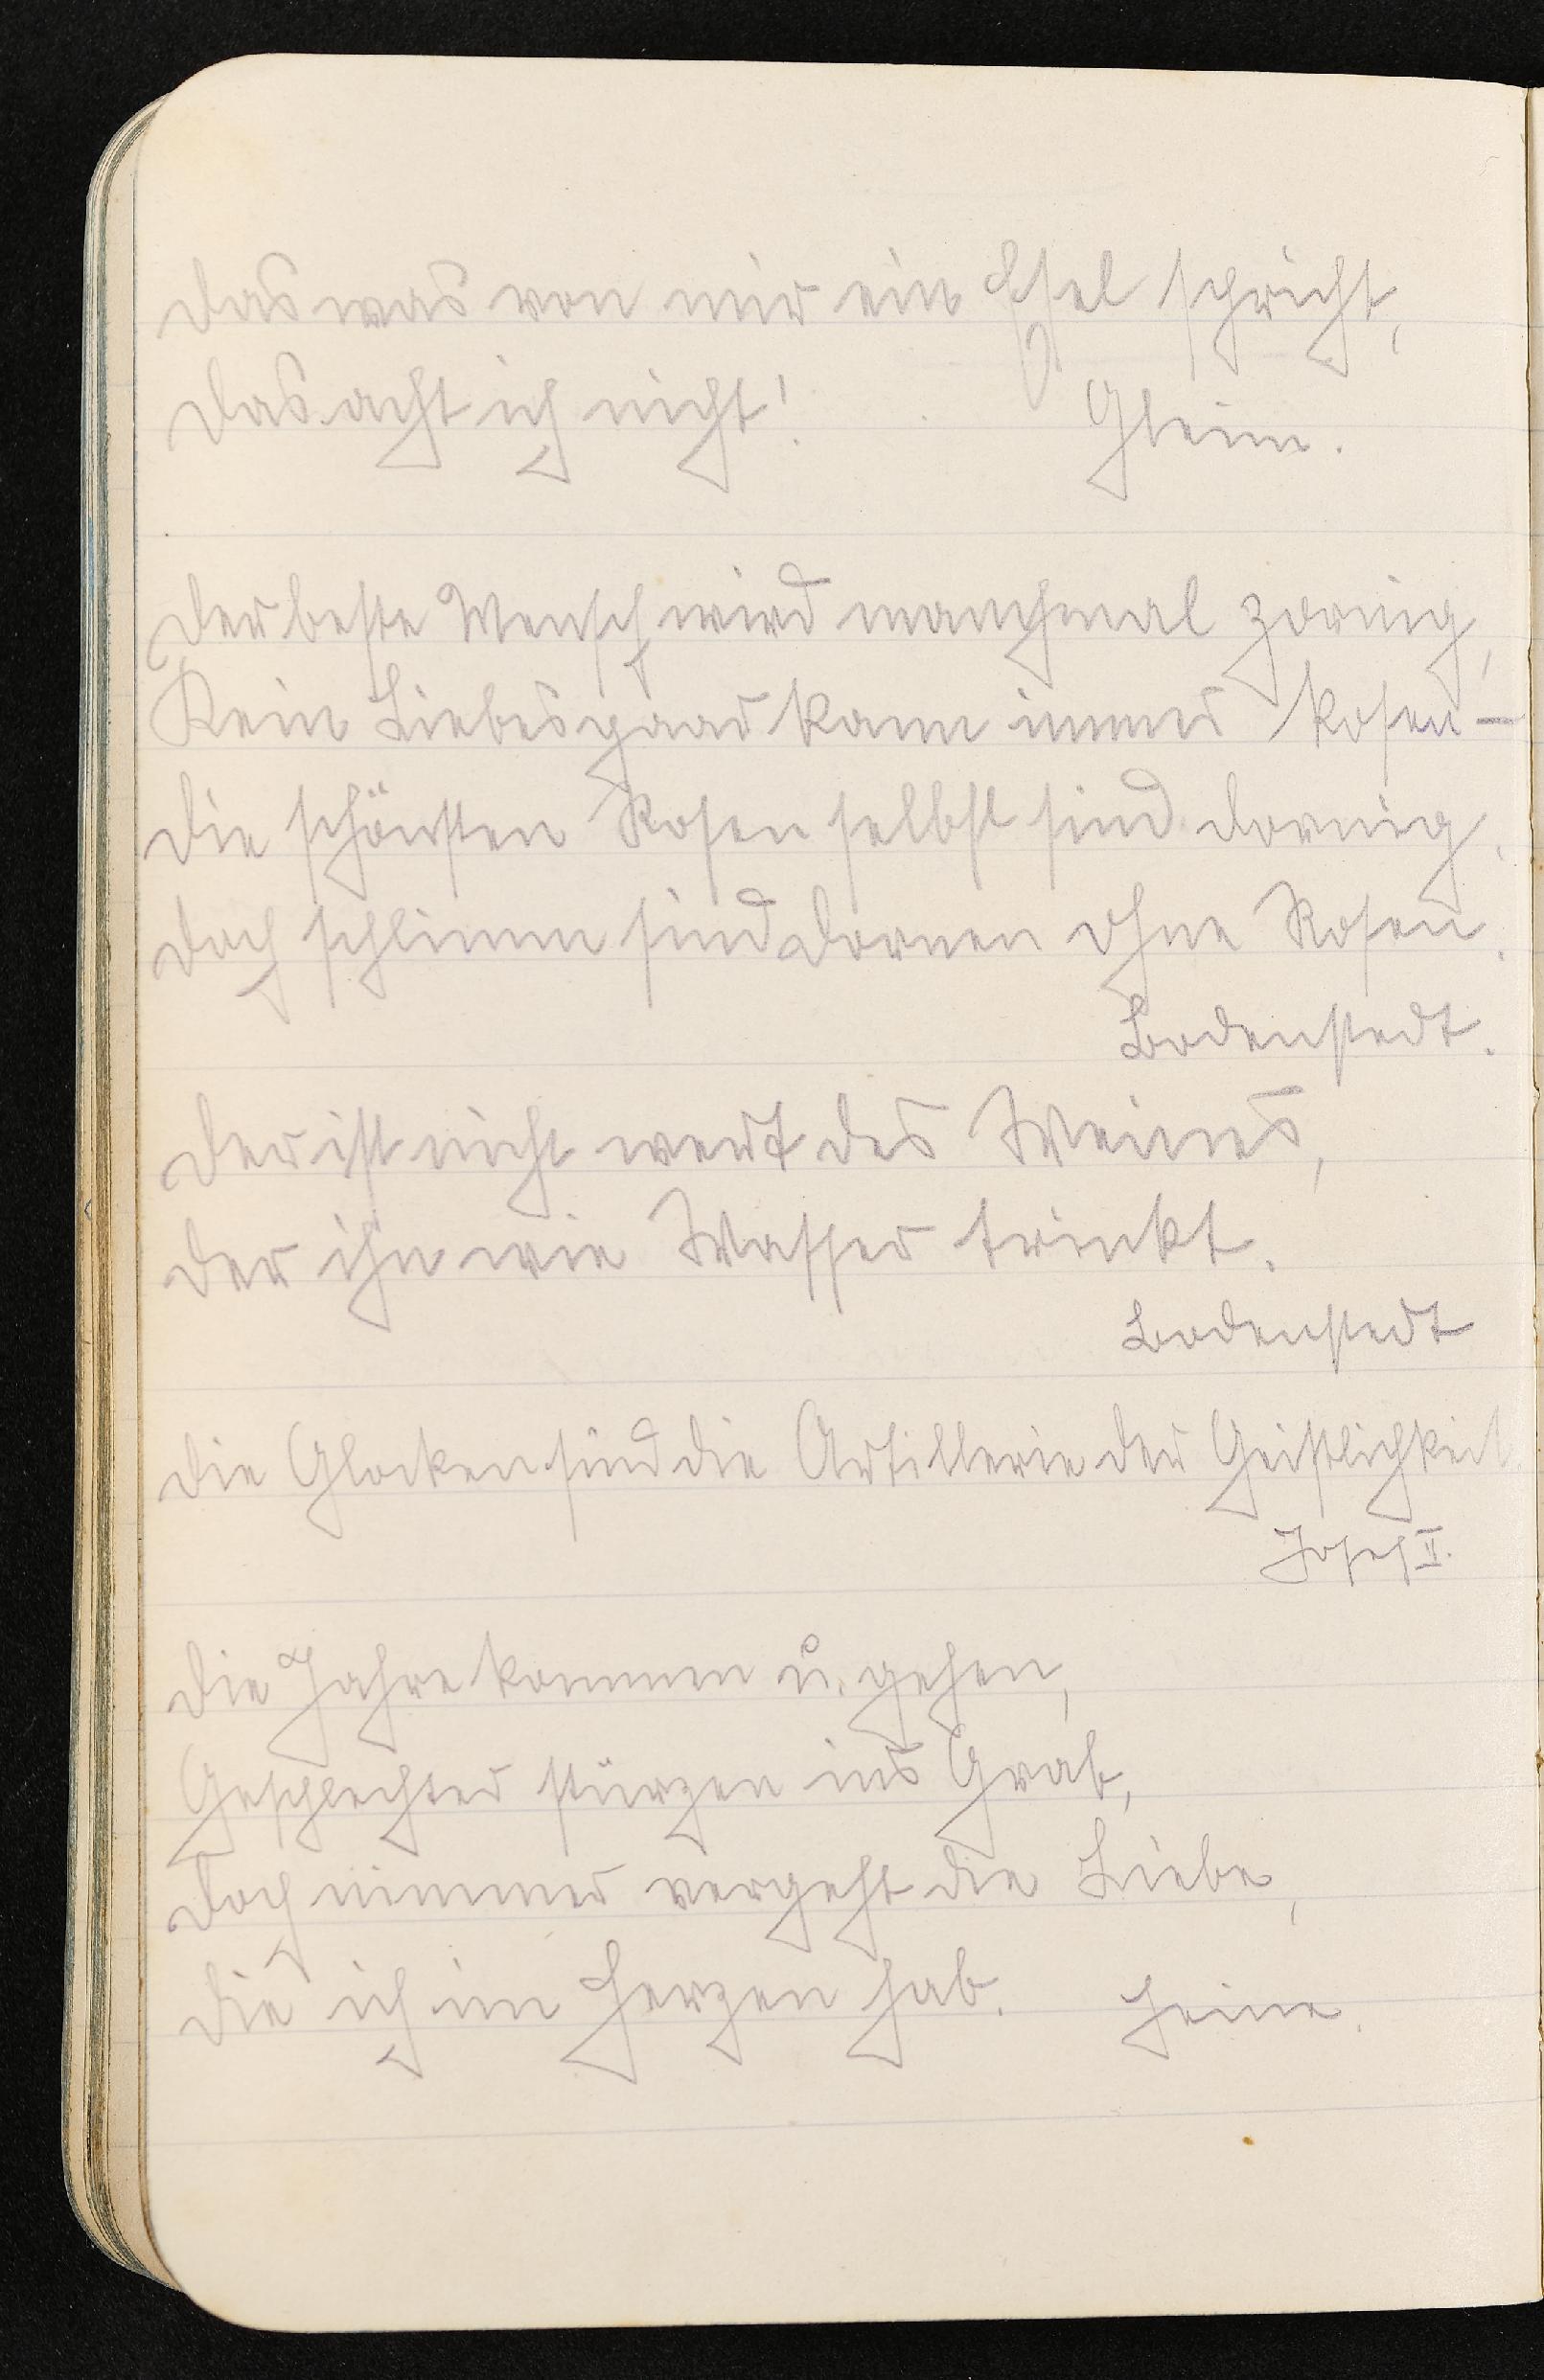 Das was von mir ein Esel spricht,
Das acht ich nicht! Gleim.
Der beste Mensch wird manchmal zornig,
Kein Liebespaar kann immer kosen –
Die schönsten Rosen selbst sind dornig,
Doch schlimm sind Dornen ohne Rosen.
Bodenstedt.
Der ist nicht wert des Weines,
Der ihn wie Wasser trinkt.
Bodenstedt
Die Glocken sind die Artillerie der Geistlichkeit.
Josef II.
Die Jahre kommen u. gehen,
Geschlechter stürzen ins Grab,
Doch nimmer vergeht die Liebe,
Die ich im Herzen hab. Heine.